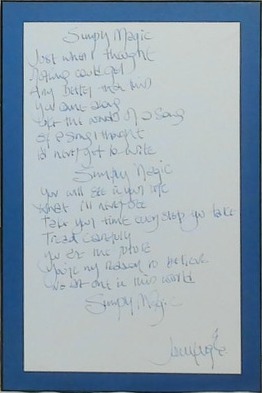 Simply Magic
Just when I thought
Nothing could get
Any better than this
You came along
Like the words of a song
A song I thought
I'd never get to write
Simply Magic
You will see in your life
What I'll never see
Take your time every step you take
Tread carefully
You are the future
You're my reason to believe
in this world
Simply Magic